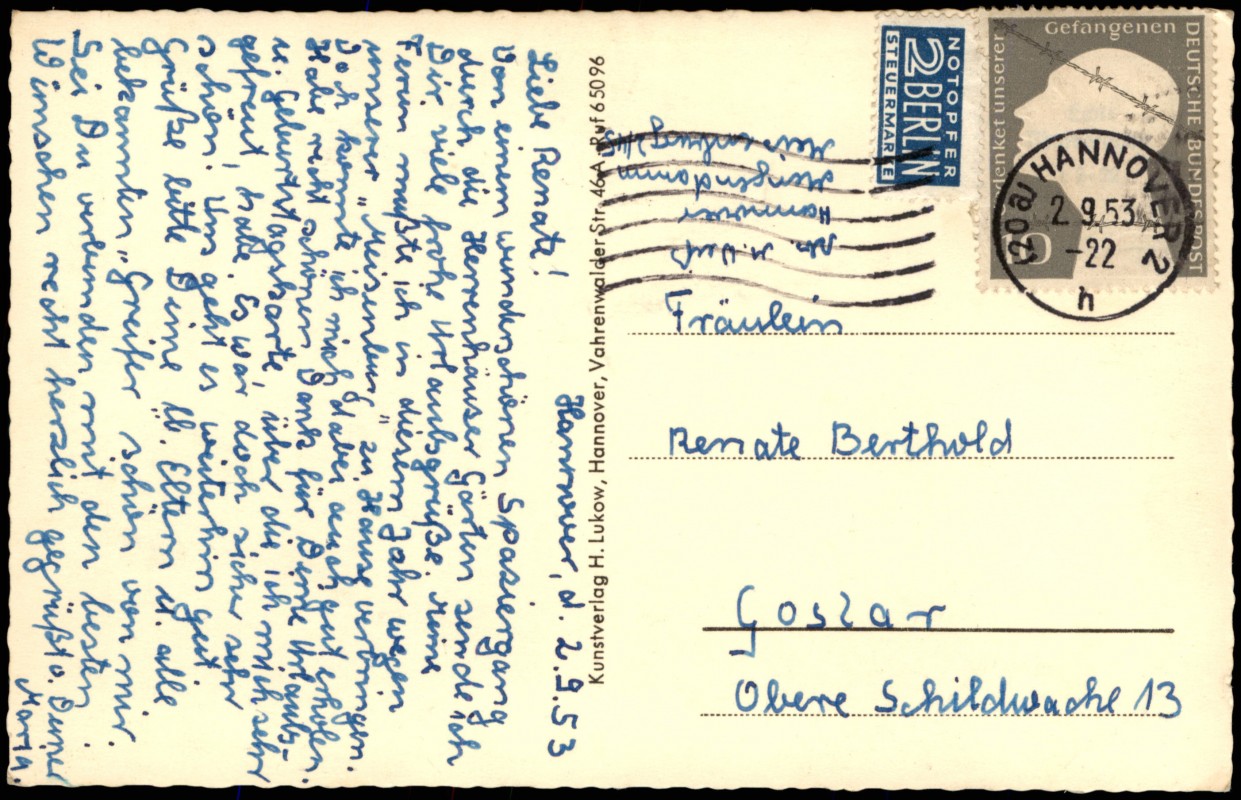 Hannover, d. 2.9.53
Liebe Renate!
Von einem wunderschönen Spaziergang
durch die Herrenhäuser Gärten sende ich
Dir viele frohe Urlaubsgrüße. Meine
Ferien mußte ich in diesem Jahr wegen
unserer "Meisenburg" zu Hause verbringen.
Doch konnte ich mich dabei auch gut erholen.
Habe recht schönen Dank für Deine Urlaubs-
u. Geburtstagskarte, über die ich mich sehr
gefreut habe. Es war doch sicher sehr
schön! Uns geht es weiterhin gut.
Grüße bitte Deine lb. Eltern u. alle
bekannten "Greifer" schön von mir.
Sei Du verbunden mit den besten
Wünschen recht herzlich gegrüßt v. Deiner
Maria.
Kunstverlag H. Lukow, Hannover, Vahrenwalder Str. 46 A · Ruf 6 50 96
Hannover
NOTOPFER
2 BERLIN
STEUERMARKE
Gedenket unserer
Gefangenen
DEUTSCHE BUNDESPOST
10
(20a) HANNOVER 2
2.9.53
-22
u
Fräulein
Renate Berthold
Goslar
Obere Schildwache 13